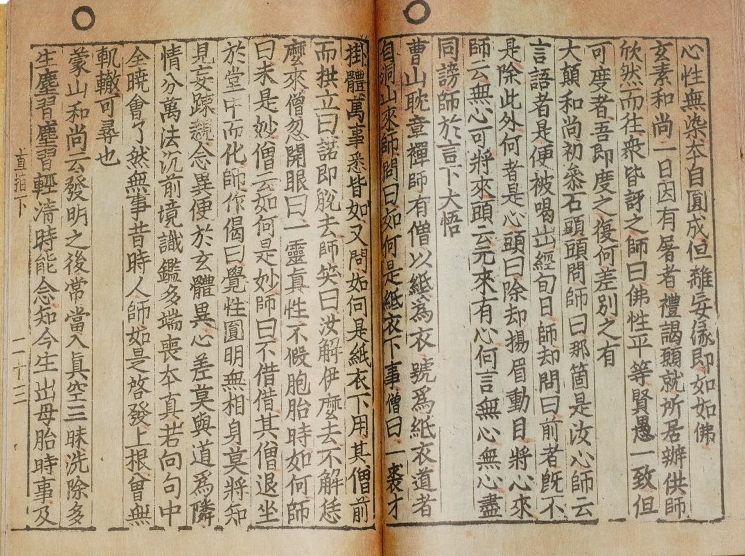 心性無染本自圓成但離妄緣即如如佛
玄素和尚一日因有屠者禮謁願就所居辦供師
欣然而往衆皆訝之師曰佛性平等賢愚一致但
可度者吾即度之復何差別之有
大顚和尚初叅石頭頭問師曰那箇是汝心師云
言語者是便被喝出經旬日師却問曰前者旣不
是除此外何者是心頭曰除却揚眉動目將心來
師云無心可將來頭云元來有心何言無心無心盡
同謗師於言下大悟
曹山耽章禪師有僧以紙爲衣號爲紙衣道者
自洞山來師問曰如何是紙衣下事僧曰一裘才
掛體萬事悉皆如又問如何是紙衣下用其僧前
而拱立曰諾即脫去師笑曰汝解伊麽去不解恁
麽來僧忽開眼曰一靈真性不假胞胎時如何師
曰未是妙僧云如何是妙師曰不借借其僧退坐
於堂中而化師作偈曰覺性圓明無相身莫將知
見妄踈親念異便於玄體異心差莫與道爲隣
情分萬法沉前境識鑑多端喪本真若向句中
全曉會了然無事昔時人師如是啓發上根曾無
軌轍可尋也
蒙山和尚云發明之後常當入眞空三昧洗除多
生塵習塵習輕清時能念知今生出母胎時事及
直指下
二十三